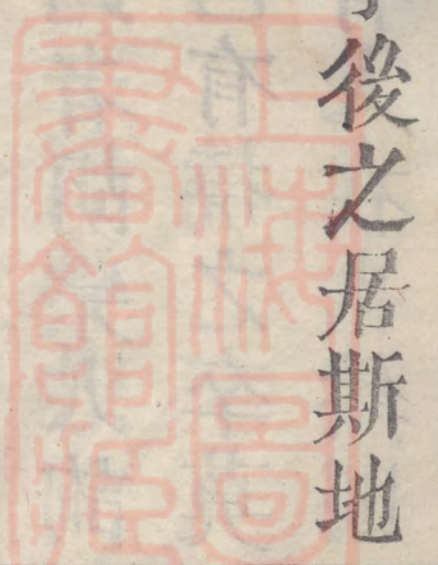 後之居斯地
上海圖
書館藏